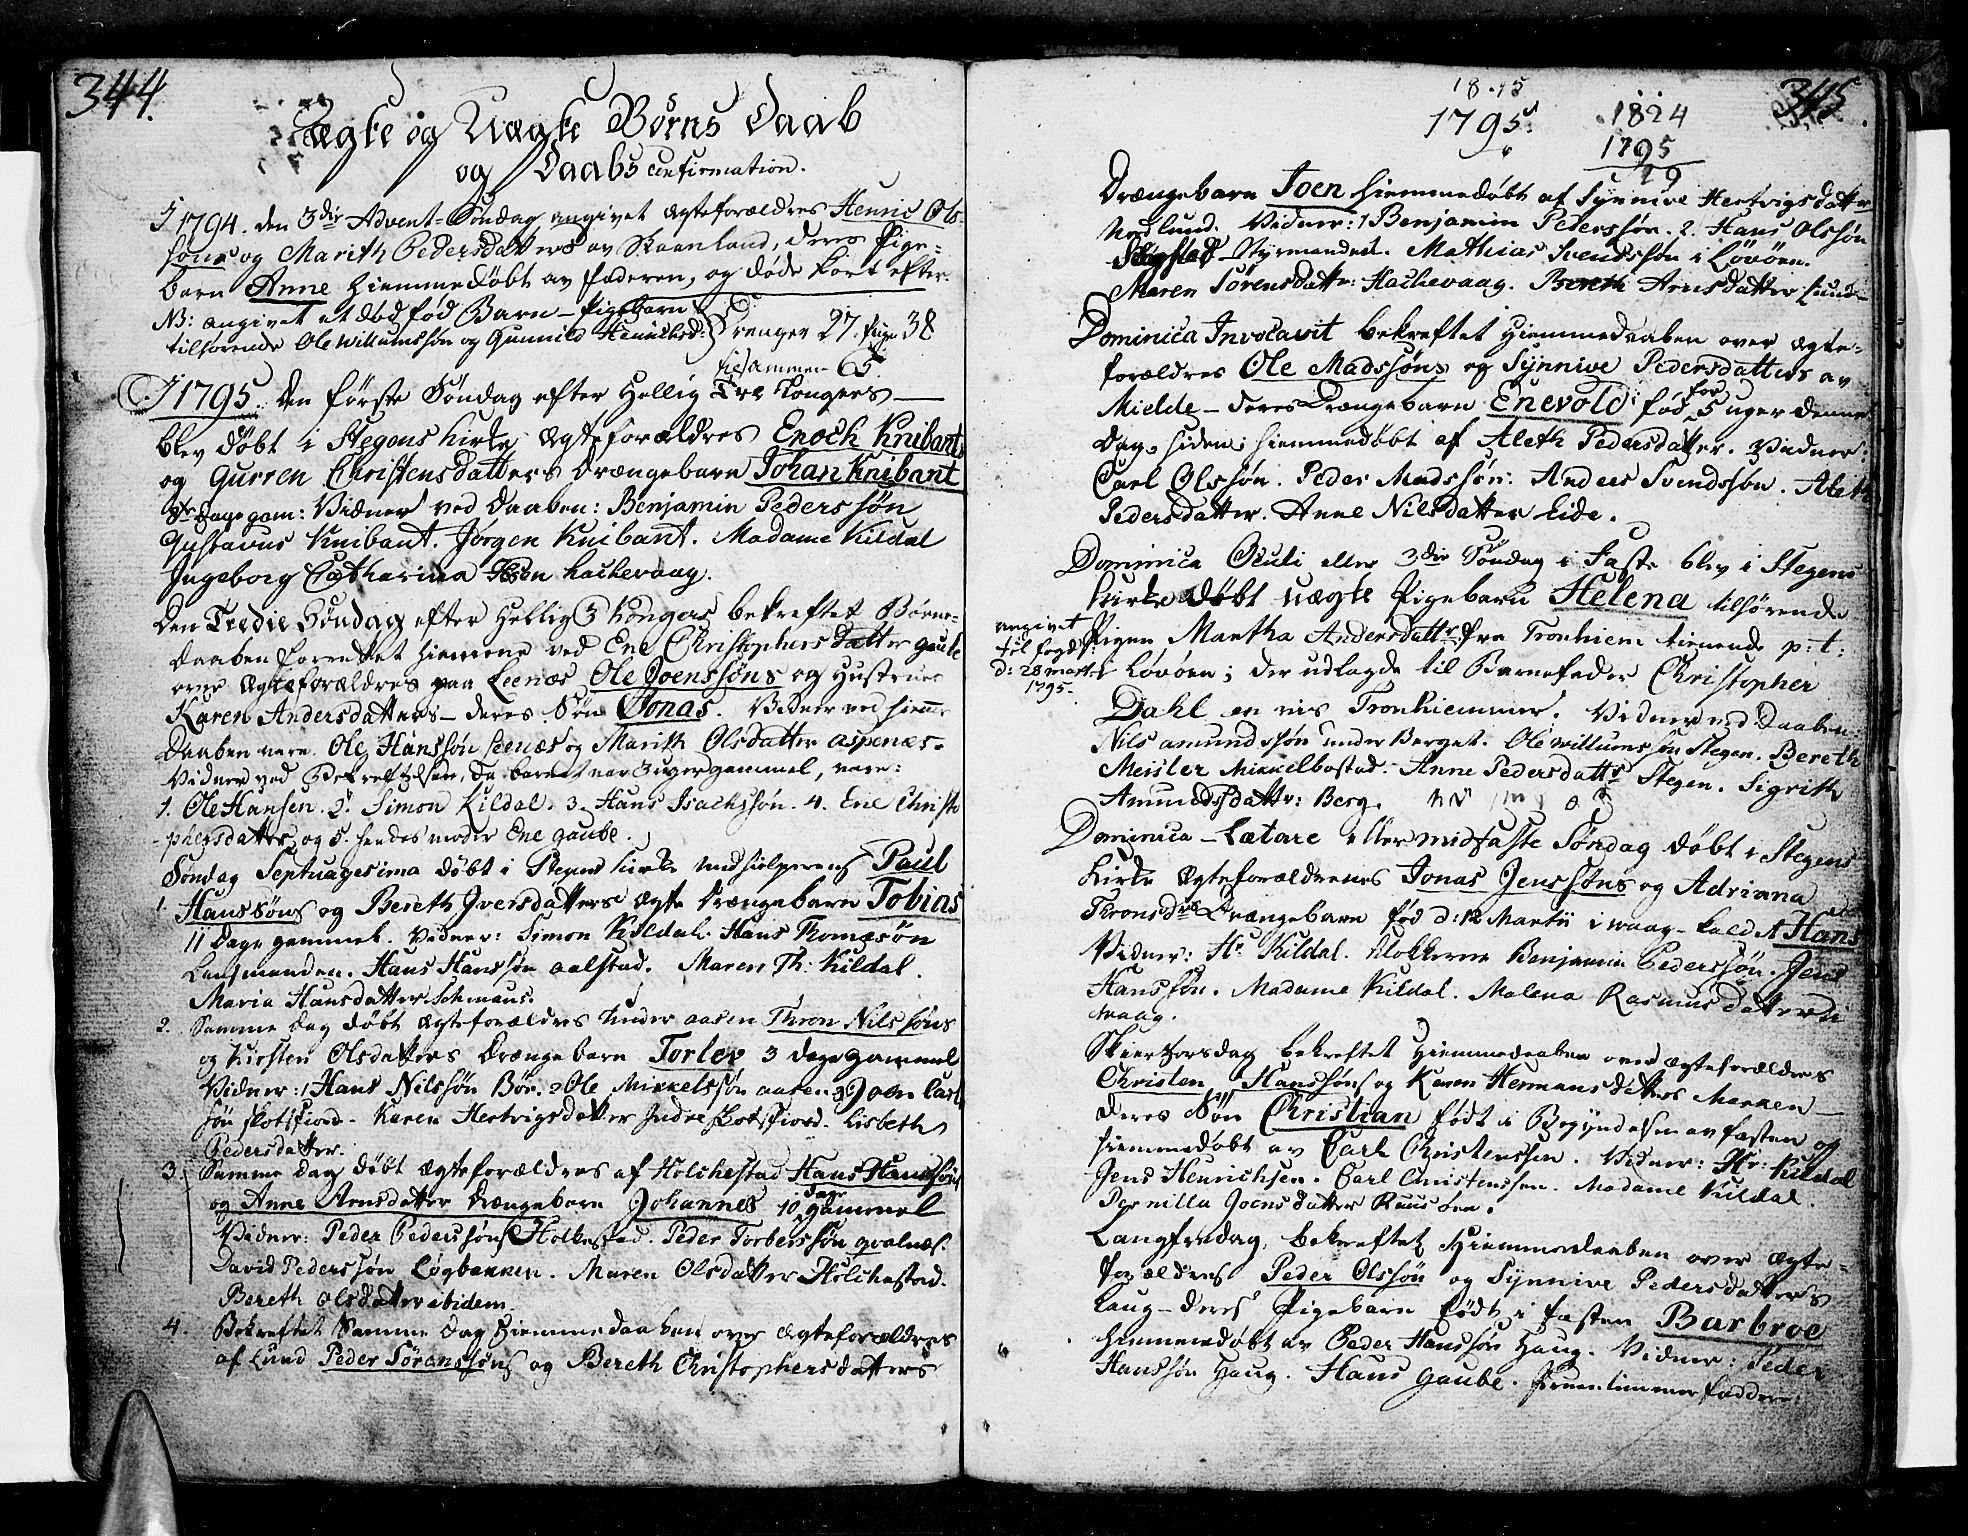 344.
Ægte og Uægte Børns Daab
og Daabs confirmation.
I 1794. den 3die Advent-Søndag angivet Ægteforældres Henric Ols
søns og Marith Pedersdatters av Skaanland, deres Pige-
barn Anne hiemmedøbt av faderen, og døde kort efter.
NB: angivet et død fød Barn - Pigebarn
tilhørende Ole Willumssøn og Gunnild Drenger 27. Piger 38
tilsammen 65
I 1795. Den første Søndag efter Hellig Tre Kongers
blev døbt i Stegens kirke Ægteforældres Enoch Knibant
og Gurren Christensdatters Drængebarn Johan Knibant
dage gam: Vidner ved Daaben: Benjamin Pederssøn
Gustavus Knibant. Jørgen Knibant. Madame Kildal
Ingeborg Catharina hachevaag.
Den Tredie Søndag efter Hellig 3 Kongers bekreftet Børne-
daaben forrettet hiemme ved Ene Christophersdatter gaube
over Ægteforældres paa Leenæs Ole Joenssøns og Hustrues
Karen Andersdatters - deres Søn Jonas. Vidner ved hiemme
daaben vare. Ole Hanssøn Leenæs og Marith Olsdatter aspenæs.
Vidner ved Bekreftelsen, da barnet var 3 uger gammel, vare:
1. Ole Hansen. 2. Simon Kildal. 3. Hans Isachssøn. 4. Ene Christo
phersdatter og 5. hendes moder Ene gaube.
Søndag Septuagesima døbt i Stegens kirke medhielperens Paul
1. Hanssøns og Bereth Iversdatters ægte Drængebarn Tobias
11 Dage gammel. Vidner: Simon Kildal. Hans Thomæsøn
Lensmanden. Hans Hanssøn aalstad. Maren Th: Kildal.
Maria Hansdatter Schmaus.
2. Samme Dag døbt Ægteforældres under aasen Thron Nilssøns
og Kirsten Olsdatters Drængebarn Torlev 3 dage gammel
Vidner: 1 Hans Nilssøn Bör. 2 Ole Mikkelssøn aasen. 3 Joen Carl
søn skotsfiord. Karen Hertvigsdatter Indre skotsfiord. Lisbeth
Pedersdatter.
3. Samme Dag døbt Ægteforældres af Holchestad Hans Hanssøns
og Anne Arnsdatter Drængebarn Johannes 10 Dage gammel
Vidner: Peder Pederssøn Holkestad. Peder Torberssøn qvalnæs.
David Pederssøn Løgbakken. Maren Olsdatter Holchestad.
Bereth Olsdatter ibidem.
4. Bekreftet Samme Dag Hiemmedaaben over Ægteforældres
af Lund Peder Sørenssøns og Bereth Christophersdatters
345.
1795.
1824
1795
29
Drængebarn Joen hiemmedøbt af Synnive Hertvigsdatter
Vidner: 1 Benjamin Pederssøn. 2. Hans Olssøn
Styrmanden. Mathias Svendssøn i Løvöen.
Maren Sørensdatter: Hachevaag. Bereth Arnsdatter Lund
Dominica Invocavit bekreftet Hiemmedaaben over Ægte-
forældres Ole Madssøns og Synnive Pedersdatters av
Mielde - deres Drængebarn Enevold: fød for 5 uger denne
dag. siden hiemmedøbt af Aleth Pedersdatter. Vidner:
Carl Olssøn. Peder Madssøn: Anders Svendssøn. Aleth
Pedersdatter. Anne Nilsdatter Eide.
Dominica Oculi eller 3die Søndag i Faste blev i Stegens
Kirke døbt uægte Pigebarn Helena tilhørende
Pigen Martha Andersdatter fra Tronhiem tienende p: t:
angivet
til fogden
d: 28 martii
1795.
i Løvöen; der udlagde til Barnefader Christopher
Dahl en vis Tronhiemmer. Vidner ved Daaben:
Nils amundssøn under Berget. Ole Willumssøn Stegen. Bereth
Meisler Mikkelbostad. Anne Pedersdatter Stegen. Sigrith
Amundsdatter: Berg.
Dominica - Lætare eller midfaste Søndag døbt i Stegens
Kirke Ægteforældrenes Jonas Jenssøns og Adriana
Thronsdrs Drængebarn fød d: 12 Martii i waag - kaldet Hans
Vidner: Hr Kildal. klokkeren Benjamin Pederssøn. Jens
Hanssøn. Madame Kildal. Malena Rasmusdatter i
waag.
Skiertorsdag bekreftet Hiemmedaaben over Ægteforældres
Christen Hanssøns og Karen Hermansdatters
deres Søn Christian født i Begyndelsen av fasten og
hiemmedøbt av Carl Christenssen. Vidner: Hr: Kildal
Jens Henrichsen. Carl Christenssen. Madame Kildal.
Pernilla Joensdatter
Langfredag, bekreftet Hiemmedaaben over Ægte-
forældres Peder Olssøn og Synnive Pedersdatters
Laug - deres Pigebarn født i fasten Barbroe
hiemmedøbt av Peder Hanssøn Haug. Vidner: Peder
Hanssøn Haug. Hans Gaube. fruentimmer faddere: